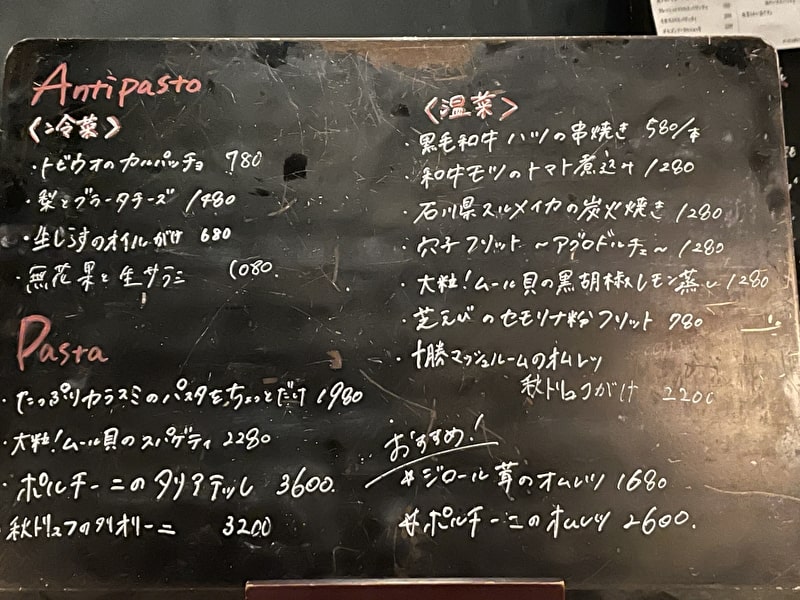 Antipasto
〈冷菜〉
・トビウオのカルパッチョ 780
・梨とブラータチーズ 1480
・生しらすのオイルがけ 680
・無花果と生サラミ 1080.
Pasta
・たっぷりカラスミのパスタをちょっとだけ 1980
・大粒!ムール貝のスパゲティ 2280
・ポルチーニのタリアテッレ 3600.
・秋トリュフのタリオリーニ 3200
〈温菜〉
・黒毛和牛ハツの串焼き 580/本
・和牛モツのトマト煮込み 1280
・石川県スルメイカの炭火焼き 1280
・穴子フリット 〜アグロドルチェ〜 1280
・大粒!ムール貝の黒胡椒レモン蒸し 1280
・芝えびのセモリナ粉フリット 980
・十勝マッシュルームのオムレツ
秋トリュフがけ 2200
おすすめ!
ジロール茸のオムレツ 1680
ポルチーニのオムレツ 2600.